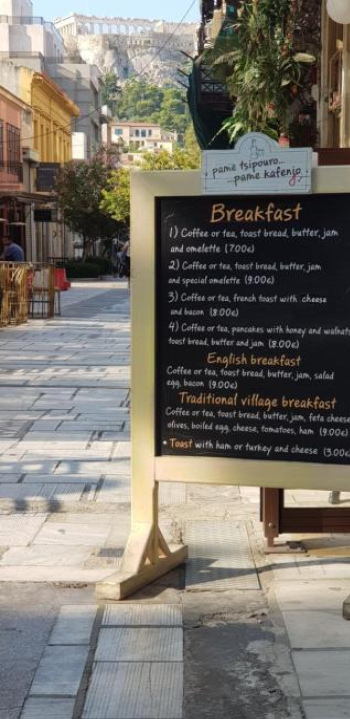 pame tsipouro...
...pame kafenio
Breakfast
1) Coffee or tea, toast bread, butter, jam
and omelette (7.00€)
2) Coffee or tea, toast bread, butter, jam
and special omelette (9.00€)
3) Coffee or tea, french toast with cheese
and bacon (8.00€)
4) Coffee or tea, pancakes with honey and walnuts
toast bread, butter and jam (8.00€)
English breakfast
Coffee or tea, toast bread, butter, jam, salad
egg, bacon (9.00€)
Traditional village breakfast
Coffee or tea, toast bread, butter, jam, feta cheese
olives, boiled egg, cheese, tomatoes, ham (9.00€)
• Toast with ham or turkey and cheese (3.00€